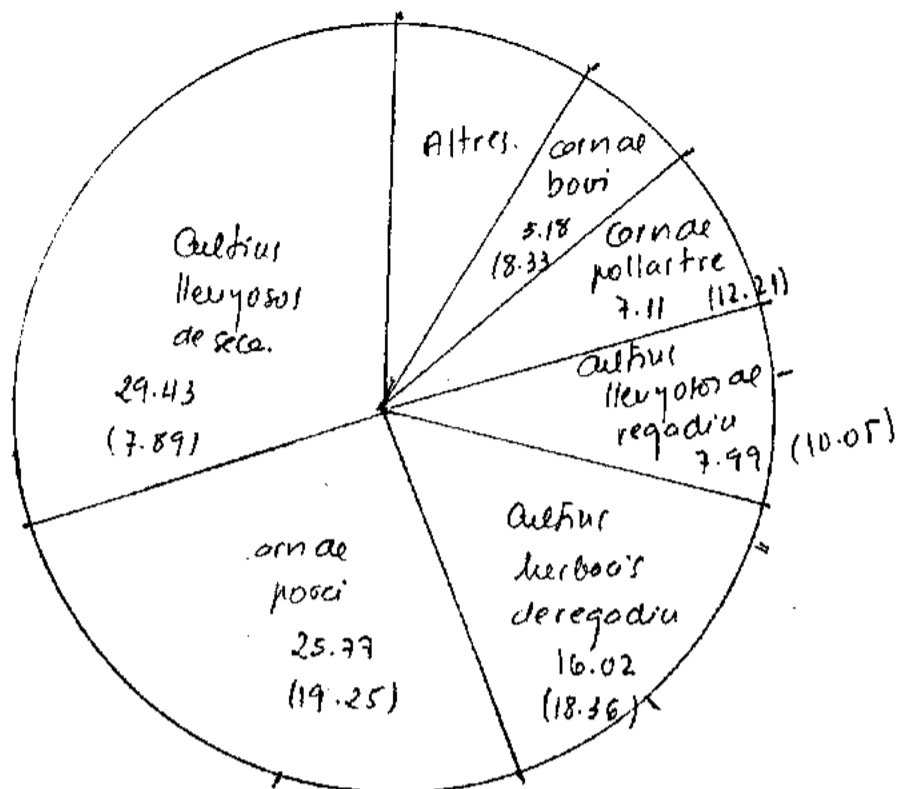 Altres.
Carn de
boví
5.18
(8.33
Carn de
pollastre
7.11 (12.21)
Cultius
llenyosos de
regadiu
7.99 (10.05)
Cultius
herbacis
de regadiu
16.02
(18.36)
arn de
porcí
25.77
(19.25)
Cultius
llenyosos
de secà.
29.43
(7.89)